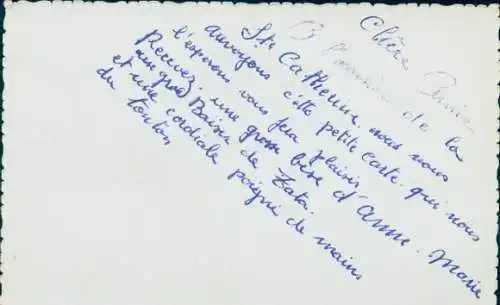 Chère Amie
A l'occasion de la
Ste Catherine nous nous
envoyons cette petite carte qui nous
l'esperons vous fera plaisir
Recevez une grosse bise d'Anne Marie
un gros Baiser de Tata
et une cordiale poigné de mains
du tonton